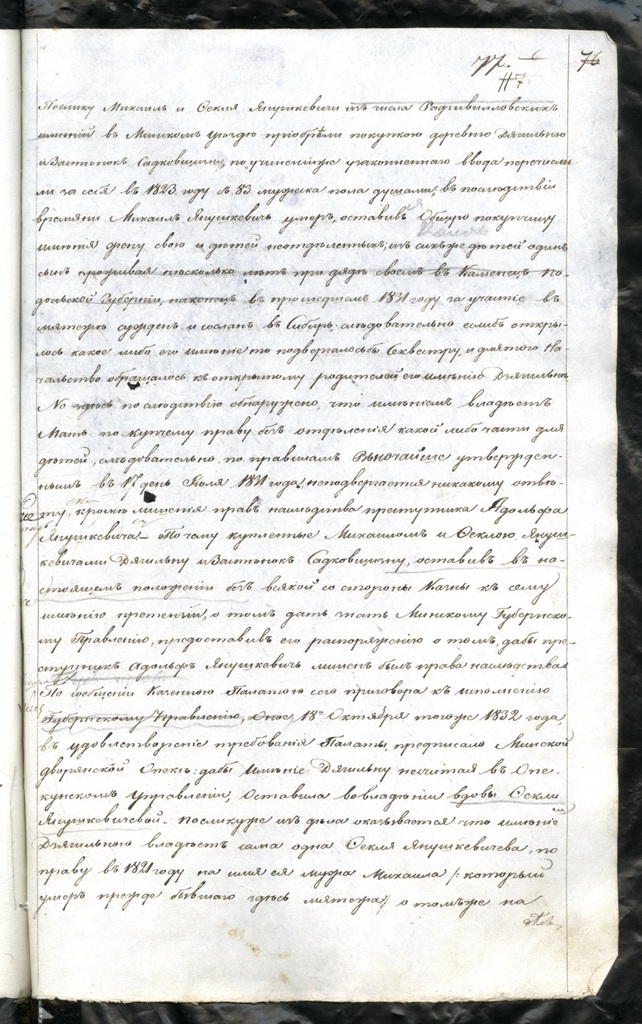 77.
#7
76
Поелику Михаилъ и Оекля Янушкевичи изъ числа Радзивилловскихъ
имѣній въ Минскомъ уѣздѣ приобрѣли покупкою деревню Дягильню
и Застѣнокъ Садковщизну, по учиненіи же узаконеннаго ввода перечисли
ли за себя въ 1823 году съ 83 мужеска пола душами, въ послѣдствіи
времяни Михаилъ Янушкевичь умеръ, оставивъ общую покупчицу
имѣнія жену свою и дѣтей неотдѣленныхъ; изъ сихъ же дѣтей одинъ
сынъ проживая нѣсколько лѣтъ при дядѣ своемъ въ Каменцѣ По-
дольской Губерніи, наконецъ въ прошедшемъ 1831 году за участіе въ
мятежѣ сужденъ и сосланъ въ Сибирь, слѣдовательно еслибъ откры-
лось какое либо его имѣніе то подвергалось бы Секвестру, и для того На-
чальство обращалось къ открытому родителей его имѣнію Дягильнѣ
Но здѣсь по слѣдствію обнаружено, что имѣніемъ владѣетъ
Мать по купчему праву безъ отдѣленія какой либо части для
дѣтей, слѣдовательно, по правиламъ Высочайше утвержден-
нымъ въ 17 день Іюля 1831 года, неподвергается никакому отвѣ-
ту, кромѣ лишенія правъ наслѣдства преступника Адольфа
Янушкевича. Почему купленные Михаиломъ и Оеклою Януш-
кевичами Дягильну и Застѣнокъ Садковщизну, оставивъ въ на-
стоящемъ положеніи безъ всякой со стороны Казны къ сему
имѣнію претензіи, о томъ дать знать Минскому Губернско-
му Правленію, предоставивъ его распоряженію о томъ, дабы пре-
ступникъ Адольфъ Янушкевичь лишенъ былъ права наслѣдства
По сообщеніи Казенною Палатою сего приговора къ исполненію
Губернскому Правленію, Оное 18 Октября тогоже 1832 года,
въ удовлетвореніе требованія Палаты, предписало Минской
дворянской Опекѣ: дабы имѣніе Дягильну несчитая въ Опе-
кунскомъ управленіи, оставила во владѣніи вдовы Оекли
Янушкевичевой. Поелику же изъ дѣла оказывается что имѣніе
Дягильною владѣетъ сама одна Оекля Янушкевичева, по
праву въ 1821 году на имя ея мужа Михаила /: который
умеръ прежде бывшаго здѣсь мятежа :/ о томъ же на